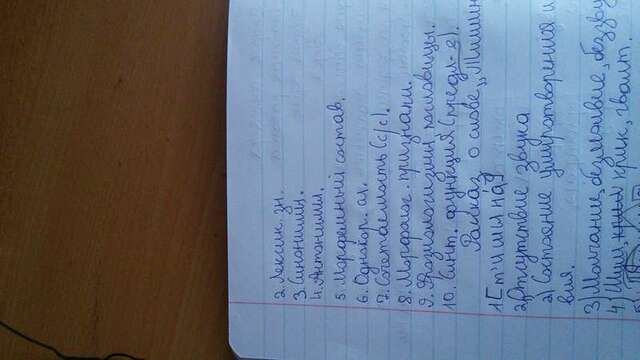 2. Лексич. зн.
3. Синонимы.
4. Антонимы.
5. Морфемный состав.
6. Однокор. сл.
7. Сочетаемость (с/с).
8. Морфолог. признаки.
9. Фразеологизмы, пословицы.
10. Синт. функция (предл-е).
Рассказ о слове „Тишин
1 [т'ишина́]
2) Отсутствие звука
2) Состояние умиротворения и
вия.
3) Молчание, безмолвие, беззву
4) Шум, крик, гвалт.
5)